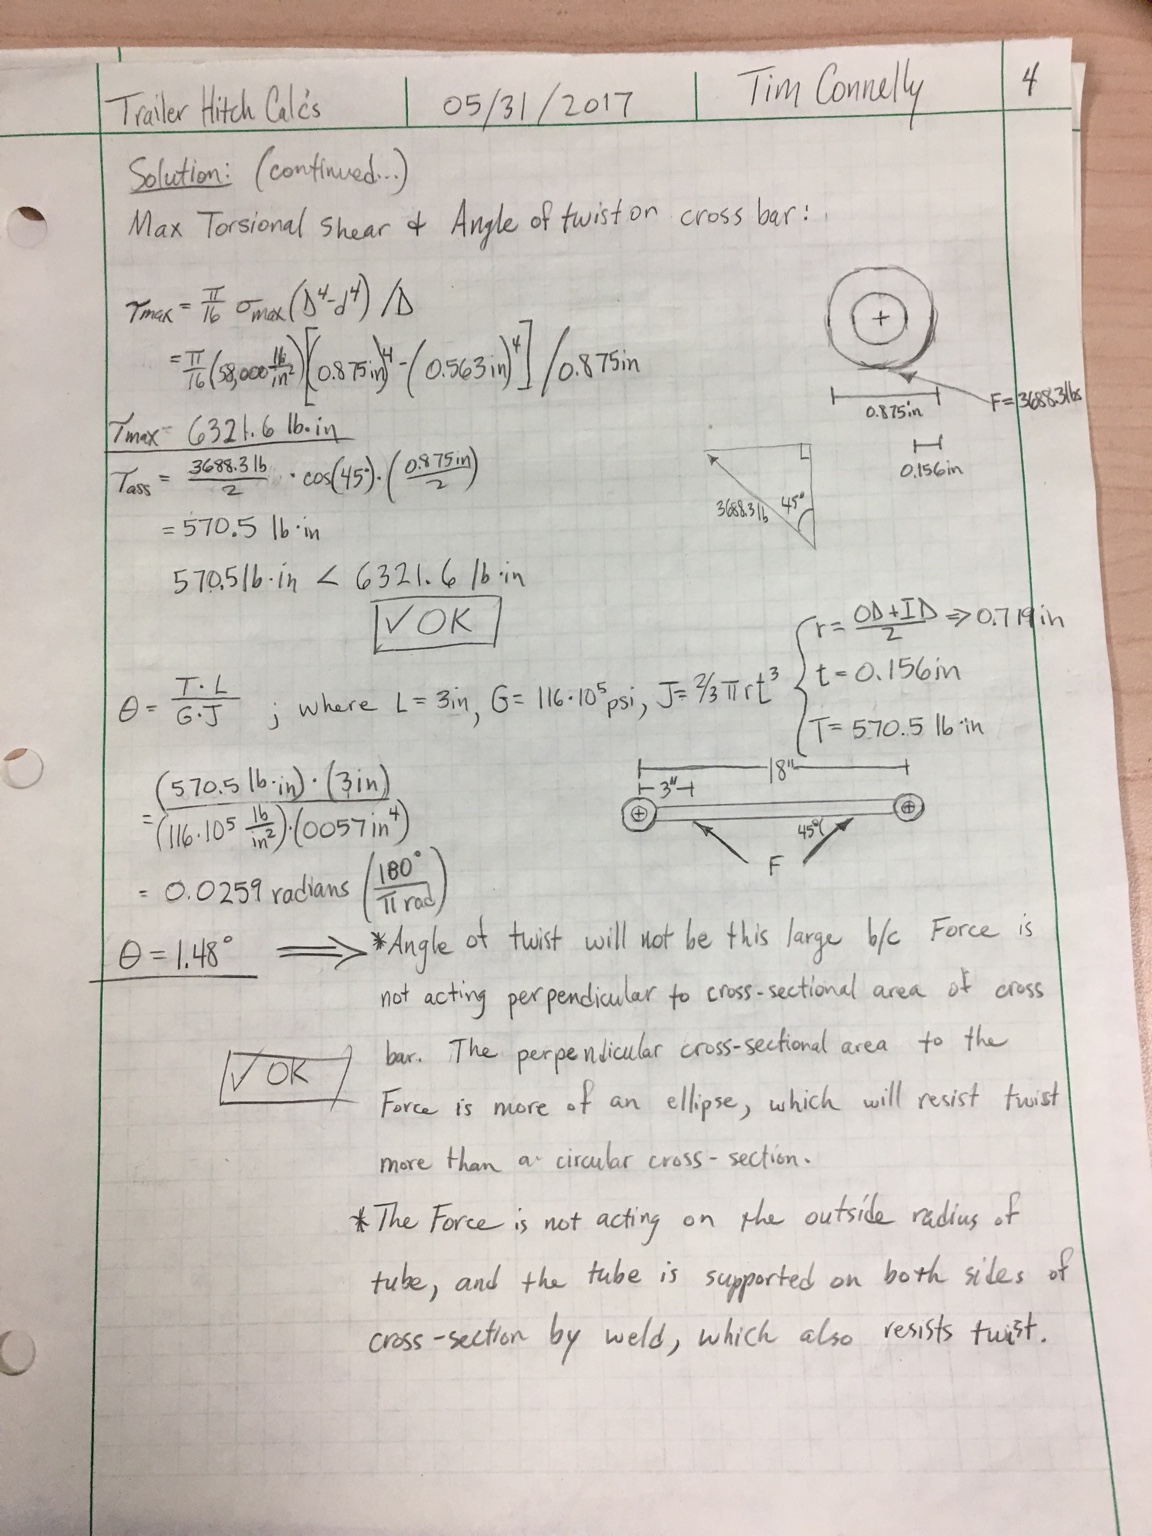 Trailer Hitch Calc's 05/31/2017 Tim Connelly 4
Solution: (continued...)
Max Torsional Shear & Angle of twist on cross bar:
τmax = π/16 σmax (D⁴-d⁴) /D
= π/16 (58,000 lb/in²) [(0.875in)⁴ - (0.563in)⁴] /0.875in
Tmax = 6321.6 lb·in
Tass = 3688.3 lb/2 · cos(45°) · (0.875in/2)
= 570.5 lb·in
570.5 lb·in < 6321.6 lb·in
✓ OK
F = 3688.3 lbs
0.875in
0.156in
3688.3 lb 45°
θ = T·L/G·J ; where L = 3in, G = 116·10⁵ psi, J = 2/3 π r t³
r = OD+ID/2 ⇒ 0.719in
t = 0.156in
T = 570.5 lb·in
= (570.5 lb·in)·(3in)/(116·10⁵ lb/in²)·(0057in⁴)
= 0.0259 radians (180°/π rad)
θ = 1.48°
✓ OK
18"
3"
45°
F
⟹ *Angle of twist will not be this large b/c Force is
not acting perpendicular to cross-sectional area of cross
bar. The perpendicular cross-sectional area to the
Force is more of an ellipse, which will resist twist
more than a circular cross-section.
*The Force is not acting on the outside radius of
tube, and the tube is supported on both sides of
cross-section by weld, which also resists twist.